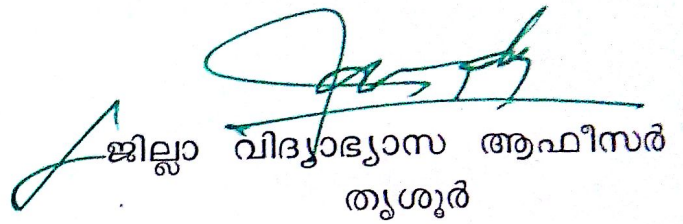 ജില്ലാ വിദ്യാഭ്യാസ ആഫീസർ
തൃശൂർ